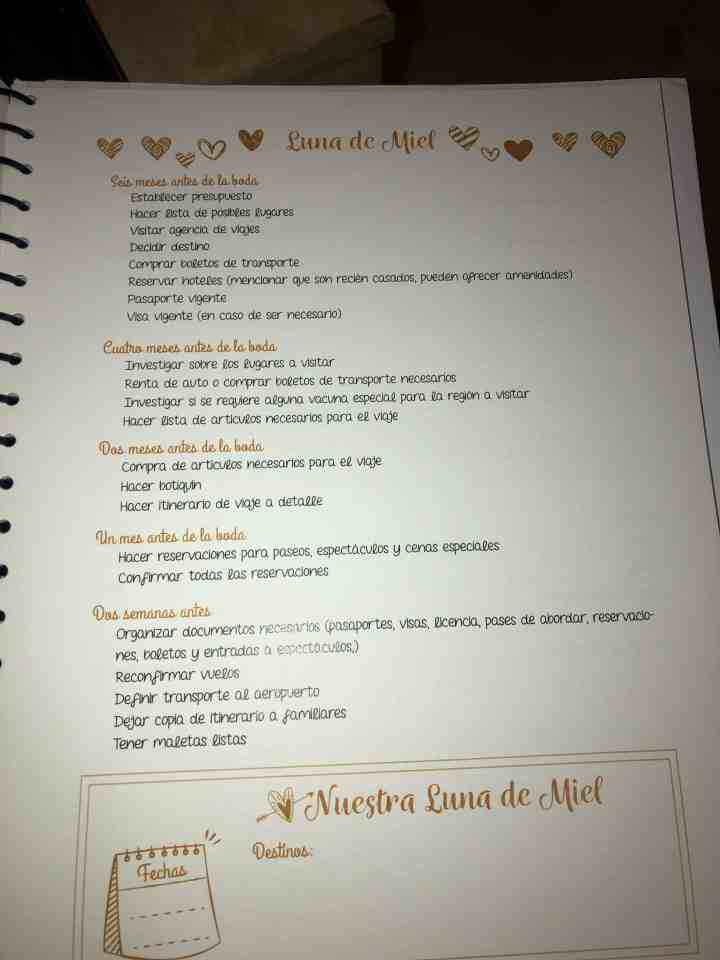 Luna de Miel
Seis meses antes de la boda
Establecer presupuesto
Hacer lista de posibles lugares
Visitar agencia de viajes
Decidir destino
Comprar boletos de transporte
Reservar hoteles (mencionar que son recién casados, pueden ofrecer amenidades)
Pasaporte vigente
Visa vigente (en caso de ser necesario)
Cuatro meses antes de la boda
Investigar sobre los lugares a visitar
Renta de auto o comprar boletos de transporte necesarios
Investigar si se requiere alguna vacuna especial para la región a visitar
Hacer lista de artículos necesarios para el viaje
Dos meses antes de la boda
Compra de artículos necesarios para el viaje
Hacer botiquín
Hacer itinerario de viaje a detalle
Un mes antes de la boda
Hacer reservaciones para paseos, espectáculos y cenas especiales
Confirmar todas las reservaciones
Dos semanas antes
Organizar documentos necesarios (pasaportes, visas, licencia, pases de abordar, reservacio-
nes, boletos y entradas a espectáculos,)
Reconfirmar vuelos
Definir transporte al aeropuerto
Dejar copia de itinerario a familiares
Tener maletas listas
Nuestra Luna de Miel
Destinos:
Fechas